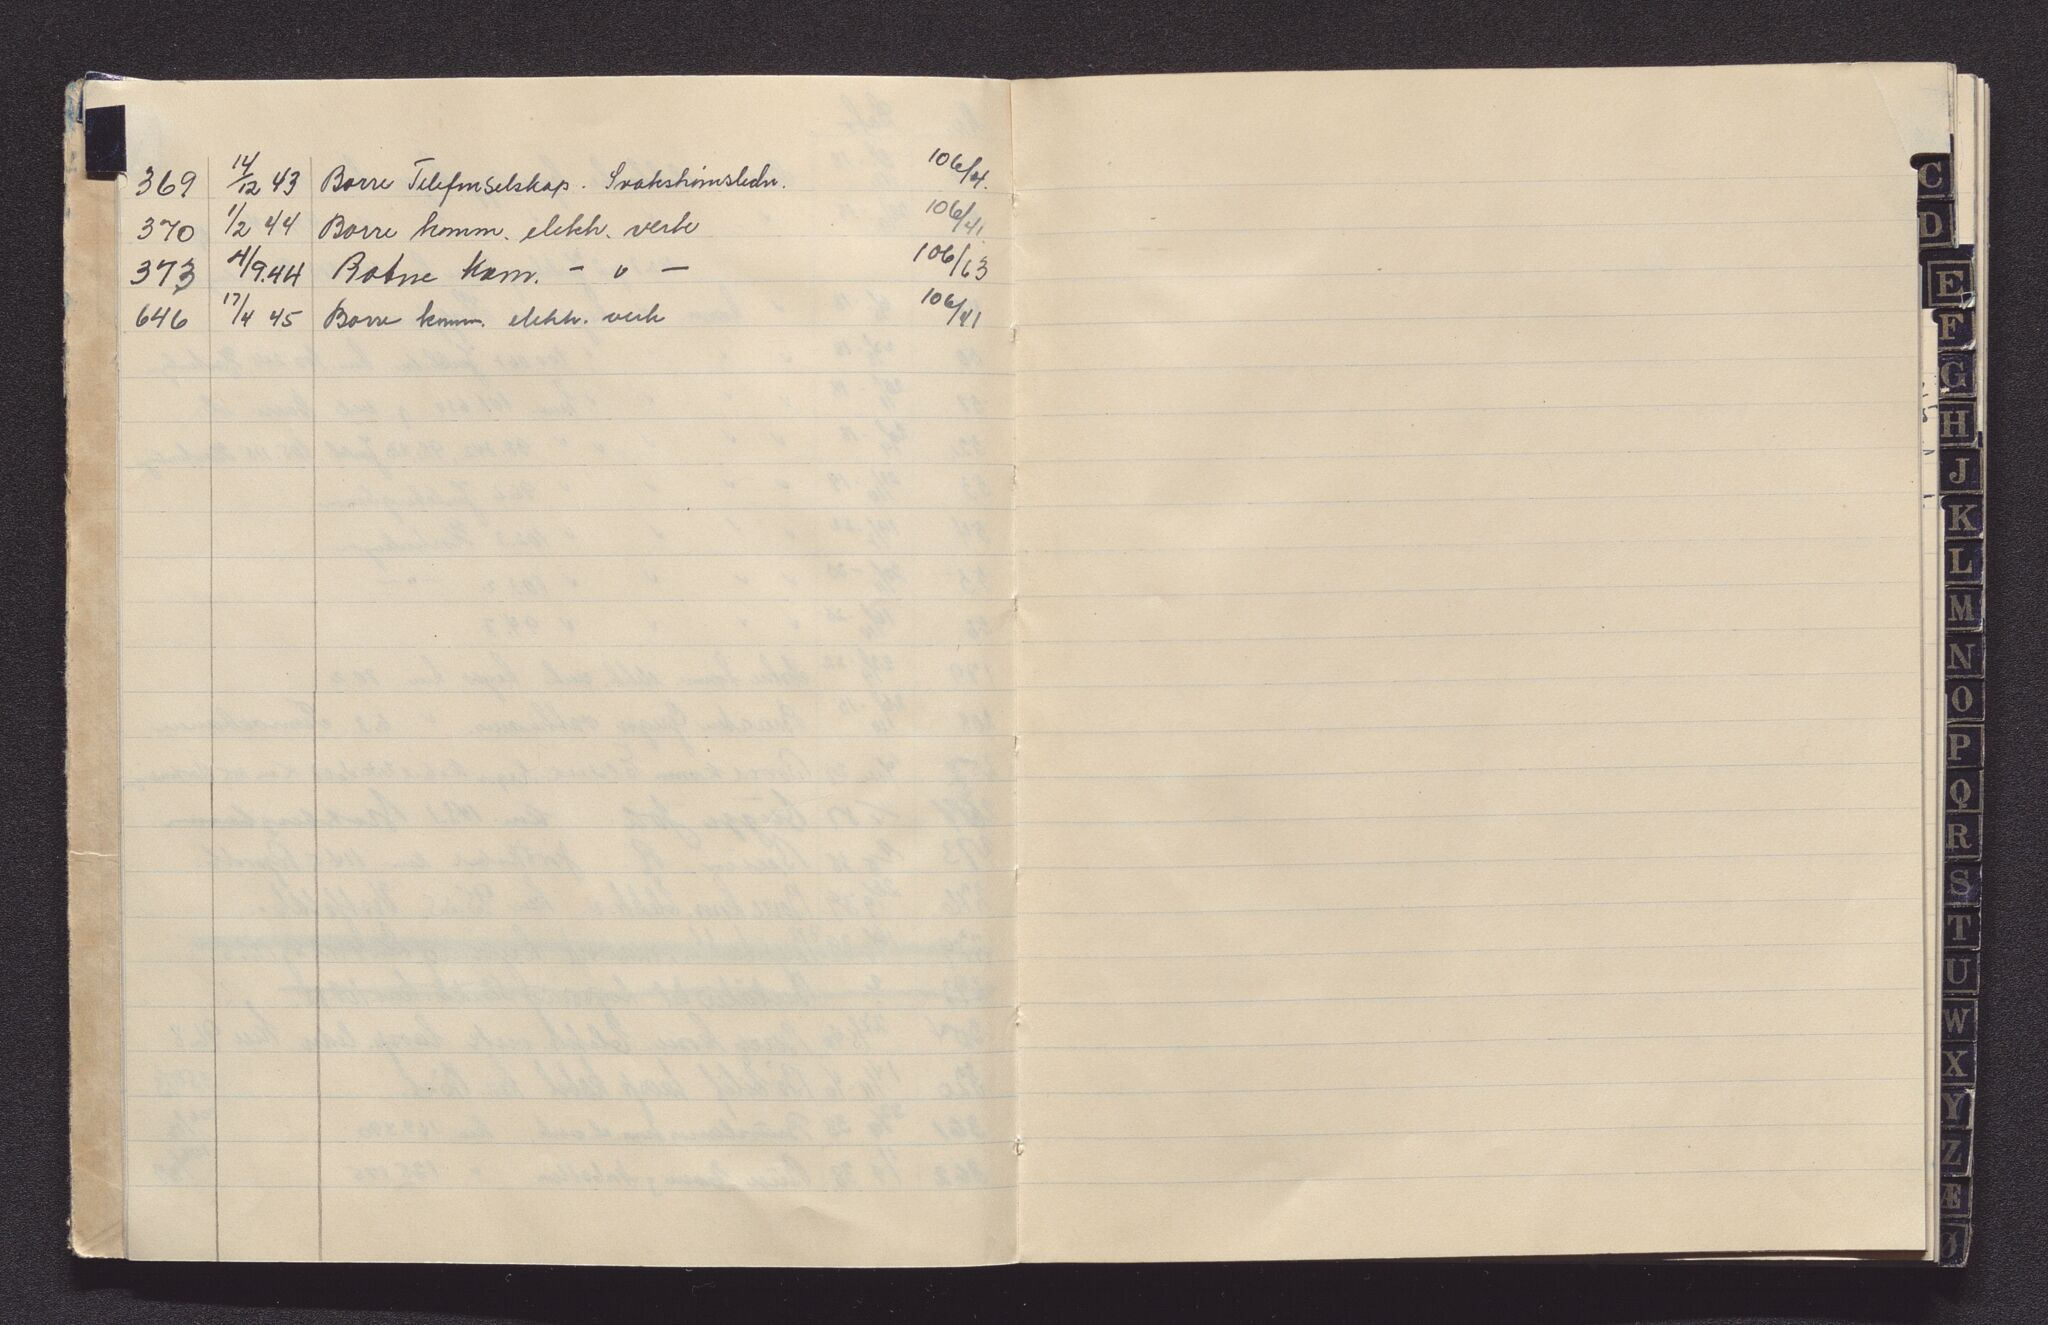 369 14/12 43 Borre Telefonselskap. Svakstrømsledn. 106/41.
370 1/2 44 Borre komm. elektr. verk 106/41.
373 4/9.44 Botne Kom. – " – 106/63
646 17/4 45 Borre komm. elektr. verk 106/41
C
D
E
F
G
H
J
K
L
M
N
O
P
Q
R
S
T
U
W
X
Y
Z
Æ
Ø